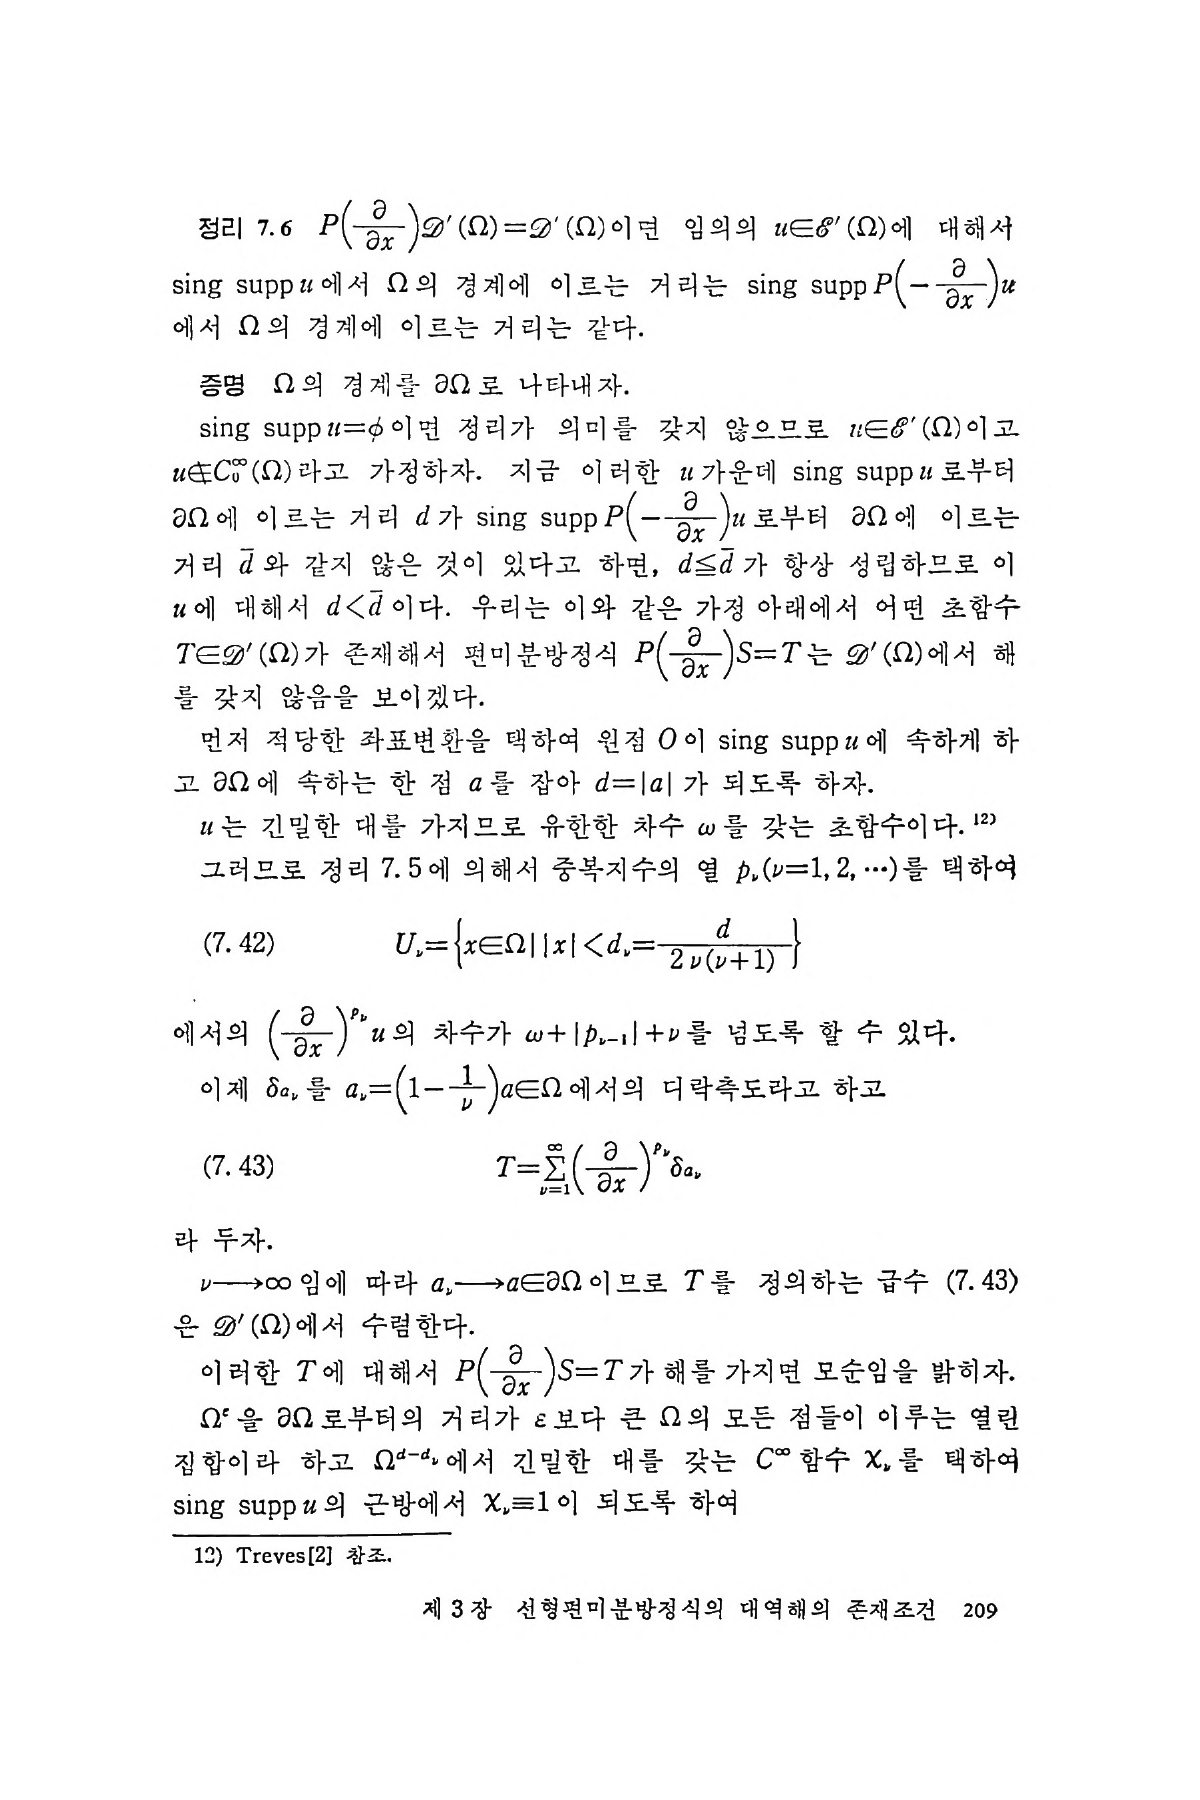 정리 7.6 P(∂/∂x)𝒟′(Ω)=𝒟′(Ω)이면 임의의 u∈ℰ′(Ω)에 대해서
sing supp u에서 Ω의 경계에 이르는 거리는 sing supp P(−∂/∂x)u
에서 Ω의 경계에 이르는 거리는 같다.
증명 Ω의 경계를 ∂Ω로 나타내자.
sing supp u=ϕ이면 정리가 의미를 갖지 않으므로 u∈ℰ′(Ω)이고
u∉C₀^∞(Ω)라고 가정하자. 지금 이러한 u가운데 sing supp u로부터
∂Ω에 이르는 거리 d가 sing supp P(−∂/∂x)u로부터 ∂Ω에 이르는
거리 d̄와 같지 않은 것이 있다고 하면, d≦d̄가 항상 성립하므로 이
u에 대해서 d<d̄이다. 우리는 이와 같은 가정 아래에서 어떤 초함수
T∈𝒟′(Ω)가 존재해서 편미분방정식 P(∂/∂x)S=T는 𝒟′(Ω)에서 해
를 갖지 않음을 보이겠다.
먼저 적당한 좌표변환을 택하여 원점 O이 sing supp u에 속하게 하
고 ∂Ω에 속하는 한 점 a를 잡아 d=|a|가 되도록 하자.
u는 긴밀한 대를 가지므로 유한한 차수 ω를 갖는 초함수이다.¹²⁾
그러므로 정리 7.5에 의해서 중복지수의 열 p_ν(ν=1, 2, ⋯)를 택하여
(7.42) U_ν={x∈Ω| |x|<d_ν=d/(2ν(ν+1))}
에서의 (∂/∂x)^{p_ν}u의 차수가 ω+|p_{ν−1}|+ν를 넘도록 할 수 있다.
이제 δ_{a_ν}를 a_ν=(1−1/ν)a∈Ω에서의 디락측도라고 하고
(7.43) T=∑_{ν=1}^{∞}(∂/∂x)^{p_ν}δ_{a_ν}
라 두자.
ν⟶∞임에 따라 a_ν⟶a∈∂Ω이므로 T를 정의하는 급수 (7.43)
은 𝒟′(Ω)에서 수렴한다.
이러한 T에 대해서 P(∂/∂x)S=T가 해를 가지면 모순임을 밝히자.
Ω^ε을 ∂Ω로부터의 거리가 ε보다 큰 Ω의 모든 점들이 이루는 열린
집합이라 하고 Ω^{d−d_ν}에서 긴밀한 대를 갖는 C^∞함수 χ_ν를 택하여
sing supp u의 근방에서 χ_ν≡1이 되도록 하여
12) Treves[2] 참조.
제 3 장 선형편미분방정식의 대역해의 존재조건 209